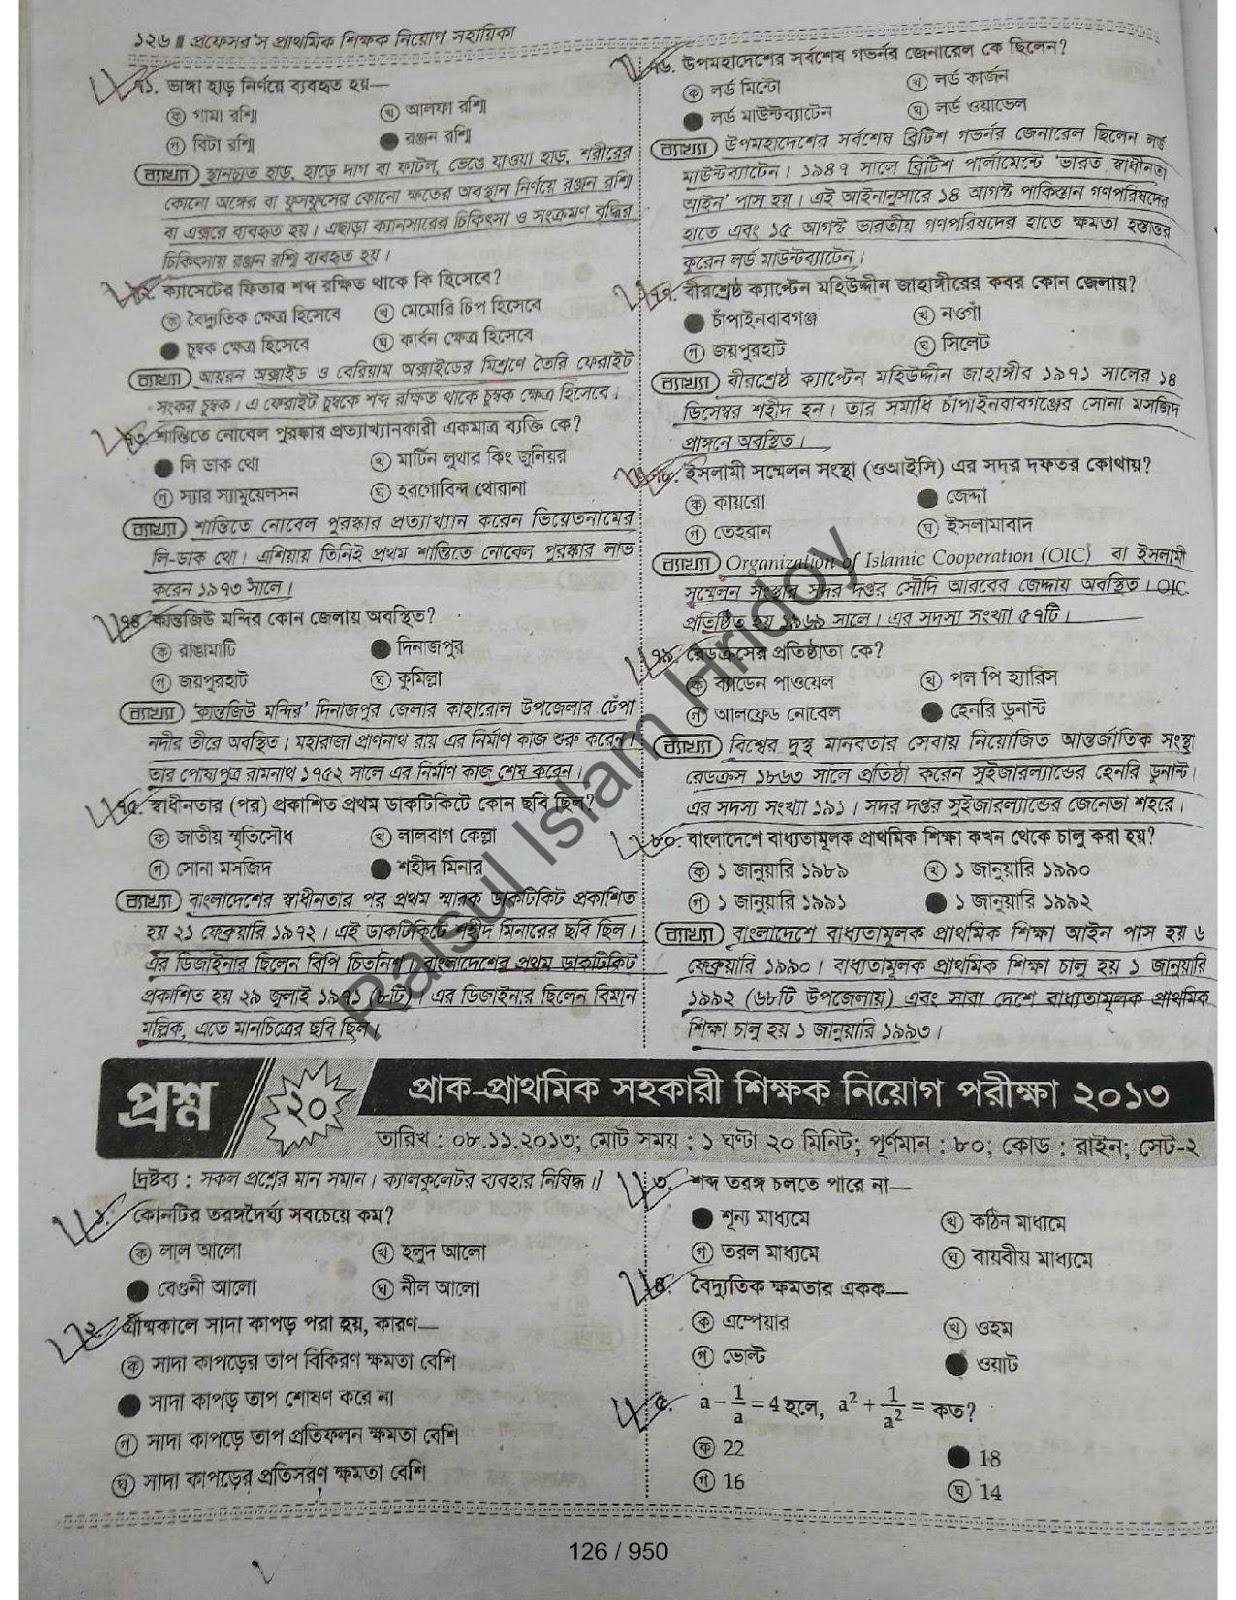 ১২৬ ॥ প্রফেসর'স প্রাথমিক শিক্ষক নিয়োগ সহায়িকা
৭১. ভাঙ্গা হাড় নির্ণয়ে ব্যবহৃত হয়—
ক গামা রশ্মি খ আলফা রশ্মি
গ বিটা রশ্মি ● রঞ্জন রশ্মি
ব্যাখ্যা স্থানচ্যুত হাড়, হাড়ে দাগ বা ফাটল, ভেঙে যাওয়া হাড়, শরীরের
কোনো অঙ্গের বা ফুসফুসের কোনো ক্ষতের অবস্থান নির্ণয়ে রঞ্জন রশ্মি
বা এক্সরে ব্যবহৃত হয়। এছাড়া ক্যানসারের চিকিৎসা ও সংক্রমণ বৃদ্ধির
চিকিৎসায় রঞ্জন রশ্মি ব্যবহৃত হয়।
৭২. ক্যাসেটের ফিতার শব্দ রক্ষিত থাকে কি হিসেবে?
ক বৈদ্যুতিক ক্ষেত্র হিসেবে খ মেমোরি চিপ হিসেবে
● চুম্বক ক্ষেত্র হিসেবে ঘ কার্বন ক্ষেত্র হিসেবে
ব্যাখ্যা আয়রন অক্সাইড ও বেরিয়াম অক্সাইডের মিশ্রণে তৈরি ফেরাইট
সংকর চুম্বক। এ ফেরাইট চুম্বকে শব্দ রক্ষিত থাকে চুম্বক ক্ষেত্র হিসেবে।
৭৩. শান্তিতে নোবেল পুরস্কার প্রত্যাখ্যানকারী একমাত্র ব্যক্তি কে?
● লি ডাক থো খ মার্টিন লুথার কিং জুনিয়র
গ স্যার স্যামুয়েলসন ঘ হরগোবিন্দ খোরানা
ব্যাখ্যা শান্তিতে নোবেল পুরস্কার প্রত্যাখ্যান করেন ভিয়েতনামের
লি-ডাক থো। এশিয়ায় তিনিই প্রথম শান্তিতে নোবেল পুরস্কার লাভ
করেন ১৯৭৩ সালে।
৭৪. কান্তজিউ মন্দির কোন জেলায় অবস্থিত?
ক রাঙামাটি ● দিনাজপুর
গ জয়পুরহাট ঘ কুমিল্লা
ব্যাখ্যা 'কান্তজিউ মন্দির' দিনাজপুর জেলার কাহারোল উপজেলার ঢেঁপা
নদীর তীরে অবস্থিত। মহারাজা প্রাণনাথ রায় এর নির্মাণ কাজ শুরু করেন।
তার পোষ্যপুত্র রামনাথ ১৭৫২ সালে এর নির্মাণ কাজ শেষ করেন।
৭৫. স্বাধীনতার (পর) প্রকাশিত প্রথম ডাকটিকিটে কোন ছবি ছিল?
ক জাতীয় স্মৃতিসৌধ খ লালবাগ কেল্লা
গ সোনা মসজিদ ● শহীদ মিনার
ব্যাখ্যা বাংলাদেশের স্বাধীনতার পর প্রথম স্মারক ডাকটিকিট প্রকাশিত
হয় ২১ ফেব্রুয়ারি ১৯৭২। এই ডাকটিকিটে শহীদ মিনারের ছবি ছিল।
এর ডিজাইনার ছিলেন বিপি চিতনিশ। বাংলাদেশের প্রথম ডাকটিকিট
প্রকাশিত হয় ২৯ জুলাই ১৯৭১ (৮টি)। এর ডিজাইনার ছিলেন বিমান
মল্লিক, এতে মানচিত্রের ছবি ছিল।
৭৬. উপমহাদেশের সর্বশেষ গভর্নর জেনারেল কে ছিলেন?
ক লর্ড মিন্টো খ লর্ড কার্জন
● লর্ড মাউন্টব্যাটেন ঘ লর্ড ওয়াভেল
ব্যাখ্যা উপমহাদেশের সর্বশেষ ব্রিটিশ গভর্নর জেনারেল ছিলেন লর্ড
মাউন্টব্যাটেন। ১৯৪৭ সালে ব্রিটিশ পার্লামেন্টে 'ভারত স্বাধীনতা
আইন' পাস হয়। এই আইনানুসারে ১৪ আগস্ট পাকিস্তান গণপরিষদের
হাতে এবং ১৫ আগস্ট ভারতীয় গণপরিষদের হাতে ক্ষমতা হস্তান্তর
করেন লর্ড মাউন্টব্যাটেন।
৭৭. বীরশ্রেষ্ঠ ক্যাপ্টেন মহিউদ্দীন জাহাঙ্গীরের কবর কোন জেলায়?
● চাঁপাইনবাবগঞ্জ খ নওগাঁ
গ জয়পুরহাট ঘ সিলেট
ব্যাখ্যা বীরশ্রেষ্ঠ ক্যাপ্টেন মহিউদ্দীন জাহাঙ্গীর ১৯৭১ সালের ১৪
ডিসেম্বর শহীদ হন। তার সমাধি চাঁপাইনবাবগঞ্জের সোনা মসজিদ
প্রাঙ্গনে অবস্থিত।
৭৮. ইসলামী সম্মেলন সংস্থা (ওআইসি) এর সদর দফতর কোথায়?
ক কায়রো ● জেদ্দা
গ তেহরান ঘ ইসলামাবাদ
ব্যাখ্যা Organization of Islamic Cooperation (OIC) বা ইসলামী
সম্মেলন সংস্থার সদর দপ্তর সৌদি আরবের জেদ্দায় অবস্থিত। OIC
প্রতিষ্ঠিত হয় ১৯৬৯ সালে। এর সদস্য সংখ্যা ৫৭টি।
৭৯. রেডক্রসের প্রতিষ্ঠাতা কে?
ক ব্যাডেন পাওয়েল খ পল পি হ্যারিস
গ আলফ্রেড নোবেল ● হেনরি ডুনান্ট
ব্যাখ্যা বিশ্বের দুস্থ মানবতার সেবায় নিয়োজিত আন্তর্জাতিক সংস্থা
রেডক্রস ১৮৬৩ সালে প্রতিষ্ঠা করেন সুইজারল্যান্ডের হেনরি ডুনান্ট।
এর সদস্য সংখ্যা ১৯১। সদর দপ্তর সুইজারল্যান্ডের জেনেভা শহরে।
৮০. বাংলাদেশে বাধ্যতামূলক প্রাথমিক শিক্ষা কখন থেকে চালু করা হয়?
ক ১ জানুয়ারি ১৯৮৯ খ ১ জানুয়ারি ১৯৯০
গ ১ জানুয়ারি ১৯৯১ ● ১ জানুয়ারি ১৯৯২
ব্যাখ্যা বাংলাদেশে বাধ্যতামূলক প্রাথমিক শিক্ষা আইন পাস হয় ৬
ফেব্রুয়ারি ১৯৯০। বাধ্যতামূলক প্রাথমিক শিক্ষা চালু হয় ১ জানুয়ারি
১৯৯২ (৬৮টি উপজেলায়) এবং সারা দেশে বাধ্যতামূলক প্রাথমিক
শিক্ষা চালু হয় ১ জানুয়ারি ১৯৯৩।
Raisul Islam Hridoy
প্রশ্ন ২০ প্রাক-প্রাথমিক সহকারী শিক্ষক নিয়োগ পরীক্ষা ২০১৩
তারিখ : ০৮.১১.২০১৩; মোট সময় : ১ ঘণ্টা ২০ মিনিট; পূর্ণমান : ৮০; কোড : রাইন; সেট-২
[দ্রষ্টব্য : সকল প্রশ্নের মান সমান। ক্যালকুলেটর ব্যবহার নিষিদ্ধ।]
১. কোনটির তরঙ্গদৈর্ঘ্য সবচেয়ে কম?
ক লাল আলো খ হলুদ আলো
● বেগুনী আলো ঘ নীল আলো
২. গ্রীষ্মকালে সাদা কাপড় পরা হয়, কারণ—
ক সাদা কাপড়ের তাপ বিকিরণ ক্ষমতা বেশি
● সাদা কাপড় তাপ শোষণ করে না
গ সাদা কাপড়ে তাপ প্রতিফলন ক্ষমতা বেশি
ঘ সাদা কাপড়ের প্রতিসরণ ক্ষমতা বেশি
৩. শব্দ তরঙ্গ চলতে পারে না—
● শূন্য মাধ্যমে খ কঠিন মাধ্যমে
গ তরল মাধ্যমে ঘ বায়বীয় মাধ্যমে
৪. বৈদ্যুতিক ক্ষমতার একক—
ক এম্পেয়ার খ ওহম
গ ভোল্ট ● ওয়াট
৫. a - 1/a = 4 হলে, a² + 1/a² = কত?
ক 22 ● 18
গ 16 ঘ 14
126 / 950